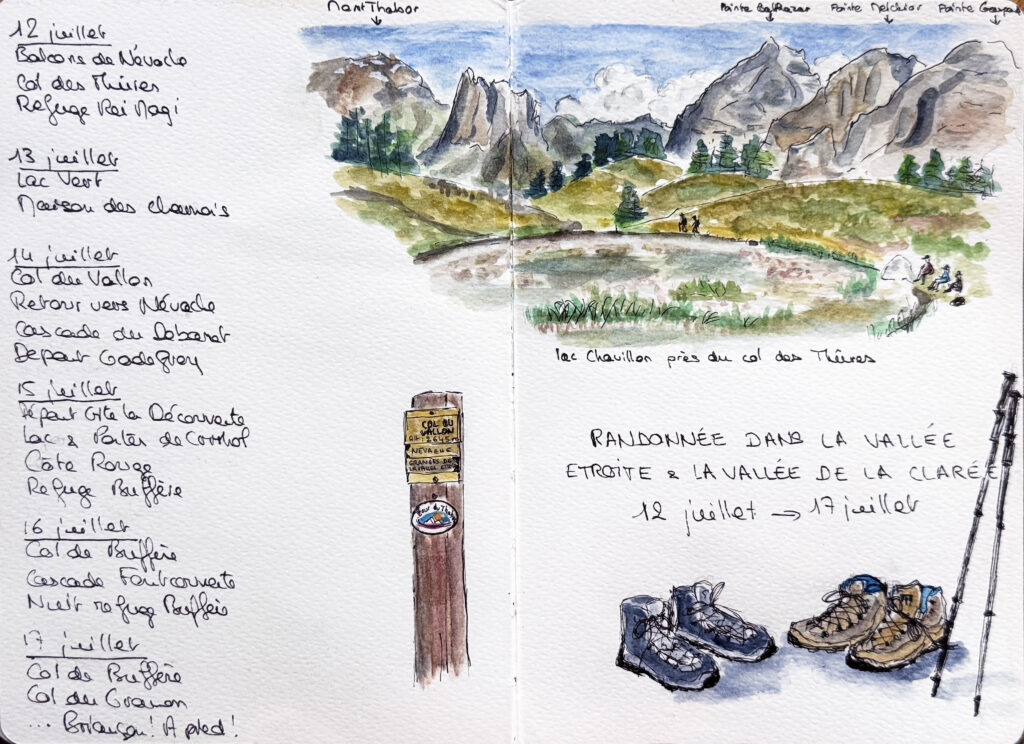 12 juillet
Balcons de Névache
Col des Thûres
Refuge Roi Magi
13 juillet
Lac Vert
Maison des chamois
14 juillet
Col du Vallon
Retour vers Névache
Cascade du Débaret
Depart Godefroy
15 juillet
Départ Gîte la Découverte
Lacs & Portes de Cristol
Côte Rouge
Refuge Buffère
16 juillet
Col de Buffère
Cascade Fontcouverte
Nuit refuge Buffère
17 juillet
Col de Buffère
Col du Granon
... Briançon! A pied!
Mont Thabor
Pointe Balthazar Pointe Melchior Pointe Gaspard
lac Chavillon près du col des Thûres
COL DU
VALLON
ALT: 2645 m
NEVACHE
GRANGES DE
LA VALLEE ETR
Tour du Thabor
RANDONNÉE DANS LA VALLÉE
ETROITE & LA VALLÉE DE LA CLARÉE
12 juillet → 17 juillet